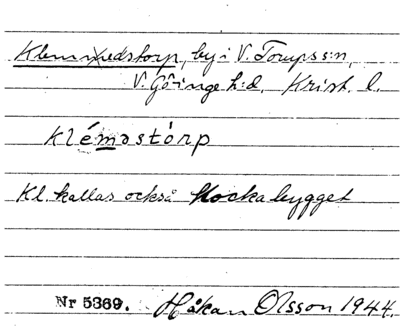 Klemmedstorp, by i V. Torups s:n,
V. Göinge h:d, Krist. l.
kléməstòrp
Kl. kallas också Kockabygget
Nr 5369. Håkan Olsson 1944.